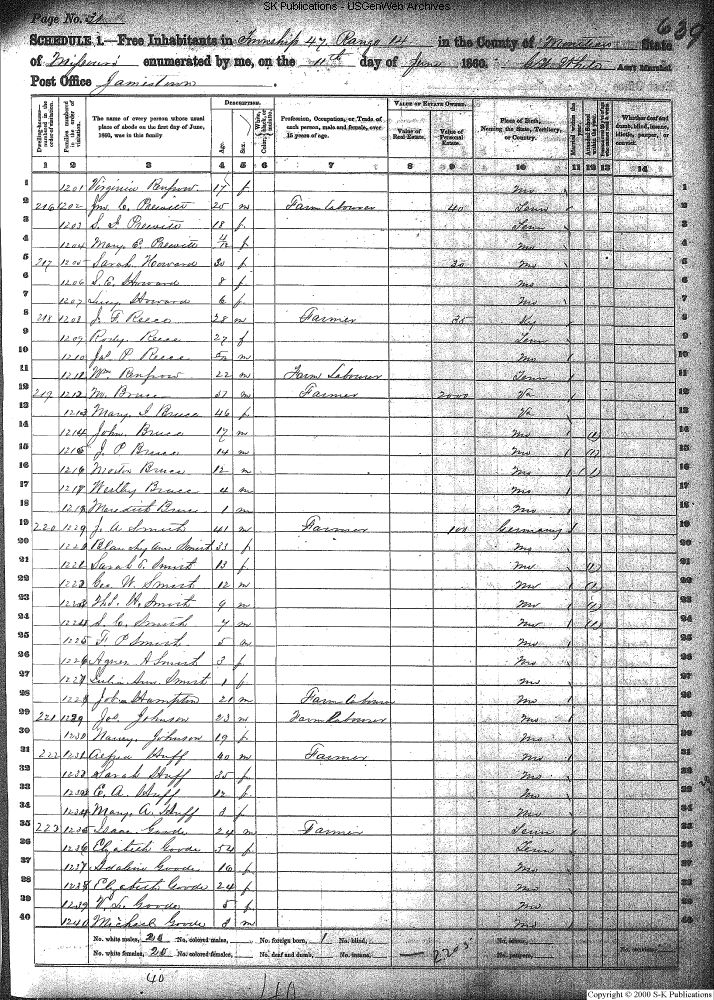 SK Publications - USGenWeb Archives
Page No.
639
SCHEDULE 1.—Free Inhabitants in Township 47 Range 14 in the County of Moniteau State
of Missouri enumerated by me, on the 11th day of June 1860. Ass't Marshal.
Post Office Jamestown.
Dwelling-houses—numbered in the order of visitation.
Families numbered in the order of visitation.
The name of every person whose usual place of abode on the first day of June, 1860, was in this family
DESCRIPTION.
Age.
Sex.
Color, White, black, or mulatto.
Profession, Occupation, or Trade of each person, male and female, over 15 years of age.
VALUE OF ESTATE OWNED.
Value of Real Estate.
Value of Personal Estate.
Place of Birth, Naming the State, Territory, or Country.
Married within the year.
Whether deaf and dumb, blind, insane, idiotic, pauper, or convict.
1 2 3 4 5 6 7 8 9 10 11 12 13 14
1 1201 Virginia Renfrow 17 f Mo 1
2 216 1202 Jno. C. Prewitt 25 m Farm Labourer 40 Tenn 2
3 1203 S. J. Prewitt 18 f Tenn 3
4 1204 Mary E. Prewitt f Mo 4
5 217 1205 Sarah Howard 30 f 30 Mo 5
6 1206 S. E. Howard 8 f Mo 6
7 1207 Howard 6 f Mo 7
8 218 1208 J. F. Reece 28 m Farmer 35 Ky 8
9 1209 Reece 27 f Tenn 9
10 1210 Jas P. Reece m Mo 10
11 Wm Renfrow 22 m Farm Labourer Tenn 11
12 219 1212 Bruce 51 m Farmer 2000 Va 12
13 1213 Mary J. Bruce 46 f Va 13
14 1214 John Bruce 17 m Mo 14
15 1215 J. P. Bruce 14 m Mo 15
16 1216 Bruce 12 m Mo 16
17 Westley Bruce 4 m Mo 17
18 Meredith Bruce 1 m Mo 18
19 220 J. A. Smith 41 m Farmer 100 Germany 19
20 Ann Smith 33 f Mo 20
21 1221 Sarah E. Smith 13 f Mo 21
22 1222 Geo. W. Smith 12 m Mo 22
23 1223 Thos. Smith 9 m Mo 23
24 1224 S. C. Smith 7 m Mo 24
25 1225 F. P. Smith 5 m Mo 25
26 1226 Agnes A Smith 3 f Mo 26
27 1227 Ann Smith 1 f Mo 27
28 1228 John Hampton 21 m Farm Labourer Mo 28
29 221 1229 Jos. Johnson 23 m Farm Labourer Mo 29
30 1230 Nancy Johnson 19 f Mo 30
31 222 1231 Alfred Huff 40 m Farmer Mo 31
32 1232 Sarah Huff 35 f Mo 32
33 E. A. Huff 12 f Mo 33
34 1234 Mary A. Huff 3 f Mo 34
35 223 1235 Isaac Goode 24 m Farmer Tenn 35
36 1236 Elizabeth Goode 54 f Tenn 36
37 1237 Adaline Goode 16 f Mo 37
38 1238 Elizabeth Goode 24 f Mo 38
39 1239 Goode 5 f Mo 39
40 1240 Michael Goode 3 m Mo 40
No. white males, 20 No. colored males, No. foreign born, 1 No. blind,
No. white females, 20 No. colored females, No. deaf and dumb, No. insane, No. idiotic, No. paupers, No. convicts,
40
Copyright © 2000 S-K Publications